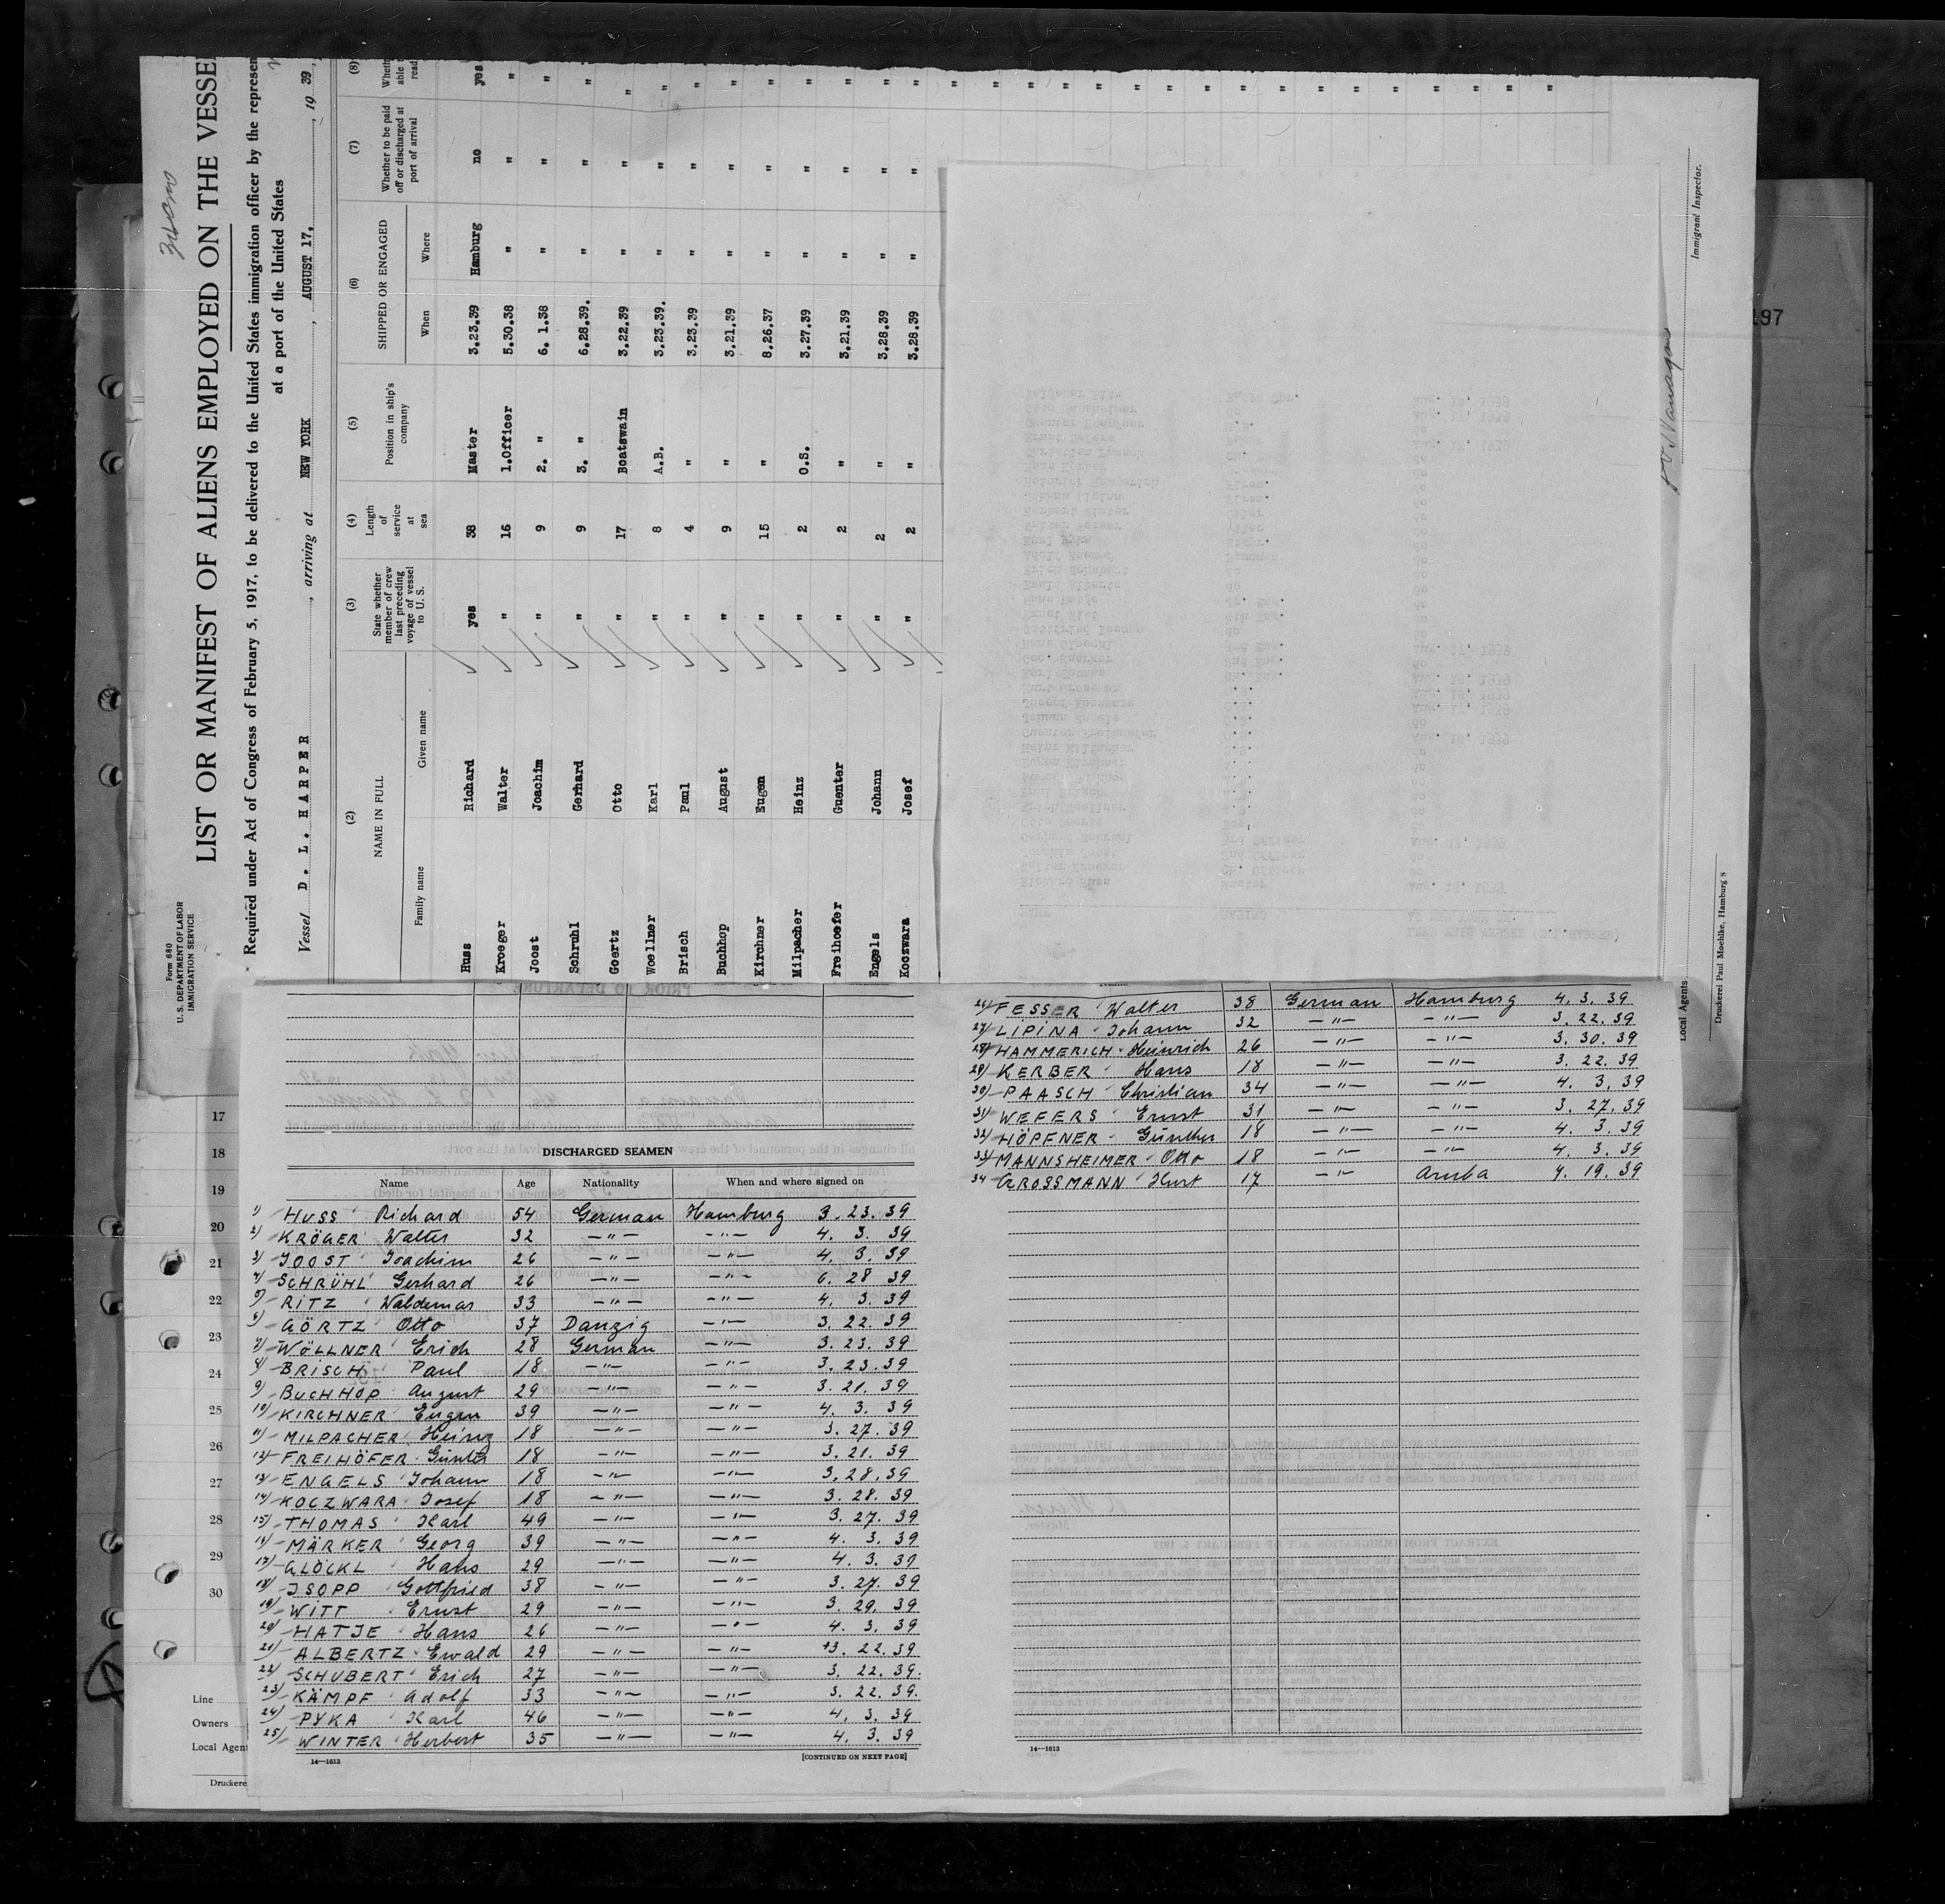 Form 680
U. S. DEPARTMENT OF LABOR
IMMIGRATION SERVICE
LIST OR MANIFEST OF ALIENS EMPLOYED ON THE VESSE
Required under Act of Congress of February 5, 1917, to be delivered to the United States immigration officer by the represen
at a port of the United States
Vessel D. L. HARPER , arriving at NEW YORK , AUGUST 17, , 19 39 ,
(2) (3) (4) (5) (6) (7) (8)
NAME IN FULL
Family name Given name
State whether member of crew last preceding voyage of vessel to U. S.
Length of service at sea
Position in ship's company
SHIPPED OR ENGAGED
When Where
Whether to be paid off or discharged at port of arrival
Wheth able t read
Huss Richard yes 38 Master 3.23.39 Hamburg no yes
Kroeger Walter " 16 1.Officer 5.30.38 " " "
Joost Joachim " 9 2. " 6. 1.38 " " "
Schruhl Gerhard " 9 3. " 6.28.39. " " "
Goertz Otto " 17 Boatswain 3.22.39 " " "
Woellner Karl " 8 A.B. 3.23.39. " " "
Brisch Paul " 4 " 3.23.39 " " "
Buchhop August " 9 " 3.21.39 " " "
Kirchner Eugen " 15 " 8.26.37 " " "
Milpacher Heinz " 2 O.S. 3.27.39 " " "
Freihoefer Guenter " 2 " 3.21.39 " " "
Engels Johann " 2 " 3.28.39 " " "
Koczwara Josef " 2 " 3.28.39 " " "
Immigrant Inspector.
Local Agents
Druckerei Paul Moehlke, Hamburg 8
197
17
18
19
20
21
22
23
24
25
26
27
28
29
30
Line
Owners
Local Agen
Druckere
DISCHARGED SEAMEN
Name Age Nationality When and where signed on
1) HUSS Richard 54 German Hamburg 3. 23. 39
2) KRÖGER Walter 32 –"– –"– 4. 3. 39
3) JOOST Joachim 26 –"– –"– 4. 3. 39
4) SCHRÜHL Gerhard 26 –"– –"– 6. 28 39
5) RITZ Waldemar 33 –"– –"– 4. 3. 39
6) GÖRTZ Otto 37 Danzig –"– 3. 22. 39
7) WÖLLNER Erich 28 German –"– 3. 23. 39
8) BRISCH Paul 18 –"– –"– 3. 23. 39
9) BUCHHOP August 29 –"– –"– 3. 21. 39
10) KIRCHNER Eugen 39 –"– –"– 4. 3. 39
11) MILPACHER Heinz 18 –"– –"– 3. 27. 39
12) FREIHÖFER Günter 18 –"– –"– 3. 21. 39
13) ENGELS Johann 18 –"– –"– 3. 28. 39
14) KOCZWARA Josef 18 –"– –"– 3. 28. 39
15) THOMAS Karl 49 –"– –"– 3. 27. 39
16) MÄRKER Georg 39 –"– –"– 4. 3. 39
17) GLÖCKL Hans 29 –"– –"– 4. 3. 39
18) JSOPP Gottfried 38 –"– –"– 3. 27. 39
19) WITT Ernst 29 –"– –"– 3. 29. 39
20) HATJE Hans 26 –"– –"– 4. 3. 39
21) ALBERTZ Ewald 29 –"– –"– 3. 22. 39
22) SCHUBERT Erich 27 –"– –"– 3. 22. 39.
23) KÄMPF Adolf 33 –"– –"– 3. 22. 39.
24) PYKA Karl 46 –"– –"– 4. 3. 39
25) WINTER Herbert 35 –"– –"– 4. 3. 39
14—1613 [CONTINUED ON NEXT PAGE]
26) FESSER Walter 38 German Hamburg 4. 3. 39
27) LIPINA Johann 32 –"– –"– 3. 22. 39
28) HAMMERICH Heinrich 26 –"– –"– 3. 30. 39
29) KERBER Hans 18 –"– –"– 3. 22. 39
30) PAASCH Christian 34 –"– –"– 4. 3. 39
31) WEFERS Ernst 31 –"– –"– 3. 27. 39
32) HÖPFNER Günther 18 –"– –"– 4. 3. 39
33) MANNSHEIMER Otto 18 –"– –"– 4. 3. 39
34 GROSSMANN Kurt 17 –"– Aruba 4. 19. 39
14—1613